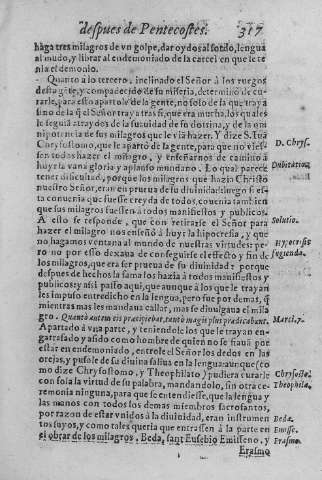 despues de Pentecostes. 317
haga tres milagros de vn golpe, dar oydos al sordo, lengua
al mudo, y librar al endemoniado de la carcel en que le te
nia el demonio.
Quanto a lo tercero, inclinado el Señor à los ruegos
desta gẽte, y compadecido de su miseria, determinò de cu-
rarle, para esso apartole de la gente, no solo de la que traya
sino de la q̃ el Señor tray a tras si, que era mucha, los quales
le seguiã atraydos de la suauidad de su dotrina, y de la om
nipotencia de sus milagros que le viã hazer. Y dize S. Iuã
Chrysostomo, que le apartò de la gente, para que no vies-
sen todos hazer el milagro, y enseñarnos de camino à
huyr la vana gloria y aplauso mundano. Lo qual parece
tener dificultad, porque los milagros que hazia Christo
nuestro Señor, eran en prueua de su diuinidad: luego si es-
to conuenia que fuesse creyda de todos, conuenia tambien
que sus milagros fuessen a todos manifiestos y publicos.
A esto se responde, que con retirarse el Señor para
hazer el milagro nos enseñò à huyr la hipocresia, y que
no hagamos ventana al mundo de nuestras virtudes: pe-
ro no por esso dexaua de conseguirse el efecto y fin de
los milagros, que era ser prueua de su diuinidad: porque
despues de hechos la fama los hazia à todos manifiestos y
publicos: y assi passò aqui, que aunque à los que le trayan
les impuso entredicho en la lengua, pero fue por demas, q̃
mientras mas les mandaua callar, mas se diuulgaua el mila
gro. Quanto autem eis præcipiebat, tanto magis plus prædicabant.
Apartado à vna parte, y teniendole los que le trayan en-
garrafado y asido como hombre de quien no se fiauã por
estar endemoniado, entrole el Señor los dedos en las
orejas, y pusole de su diuina saliua en la lengua: aunque (co
mo dize Chrysostomo, y Theophilato) pudiera curarle
con sola la virtud de su palabra, mandandolo, sin otra ce-
remonia ninguna, para que se entendiesse, que la lengua y
las manos con todos los demas miembros sacrosantos,
por razon de estar vnidos à la diuinidad, eran instrumen
tos suyos, y como tales queria que entrassen à la parte en
el obrar de los milagros. Beda, sant Eusebio Emisseno, y
Erasmo
D. Chrys.
Dubitation
Solutio.
Hypocrisis
fugienda.
Marci. 7.
Chrysosto.
Theophila.
Beda.
Emisse.
Erasmo.